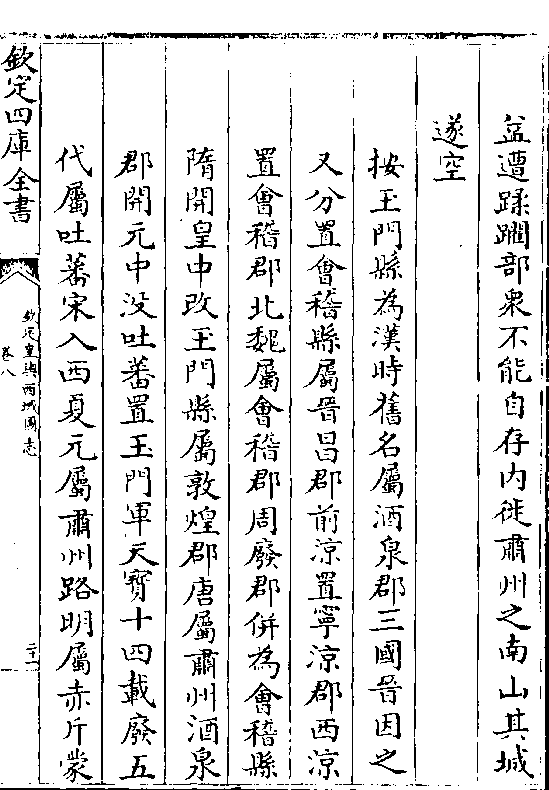 盆遭蹂躙部衆不能自存内徙肅州之南山其城
遂空
按玉門縣為漢時舊名屬酒泉郡三國晉因之
又分置會稽縣屬晉昌郡前涼置寧涼郡西涼
置會稽郡北魏屬會稽郡周廢郡併為會稽縣
隋開皇中改玉門縣屬敦煌郡唐屬肅州酒泉
郡開元中没吐蕃置玉門軍天寶十四載廢五
代屬吐蕃宋入西夏元屬肅州路明屬赤斤蒙
欽定四庫全書
欽定皇輿西域圖志
卷八
二十一